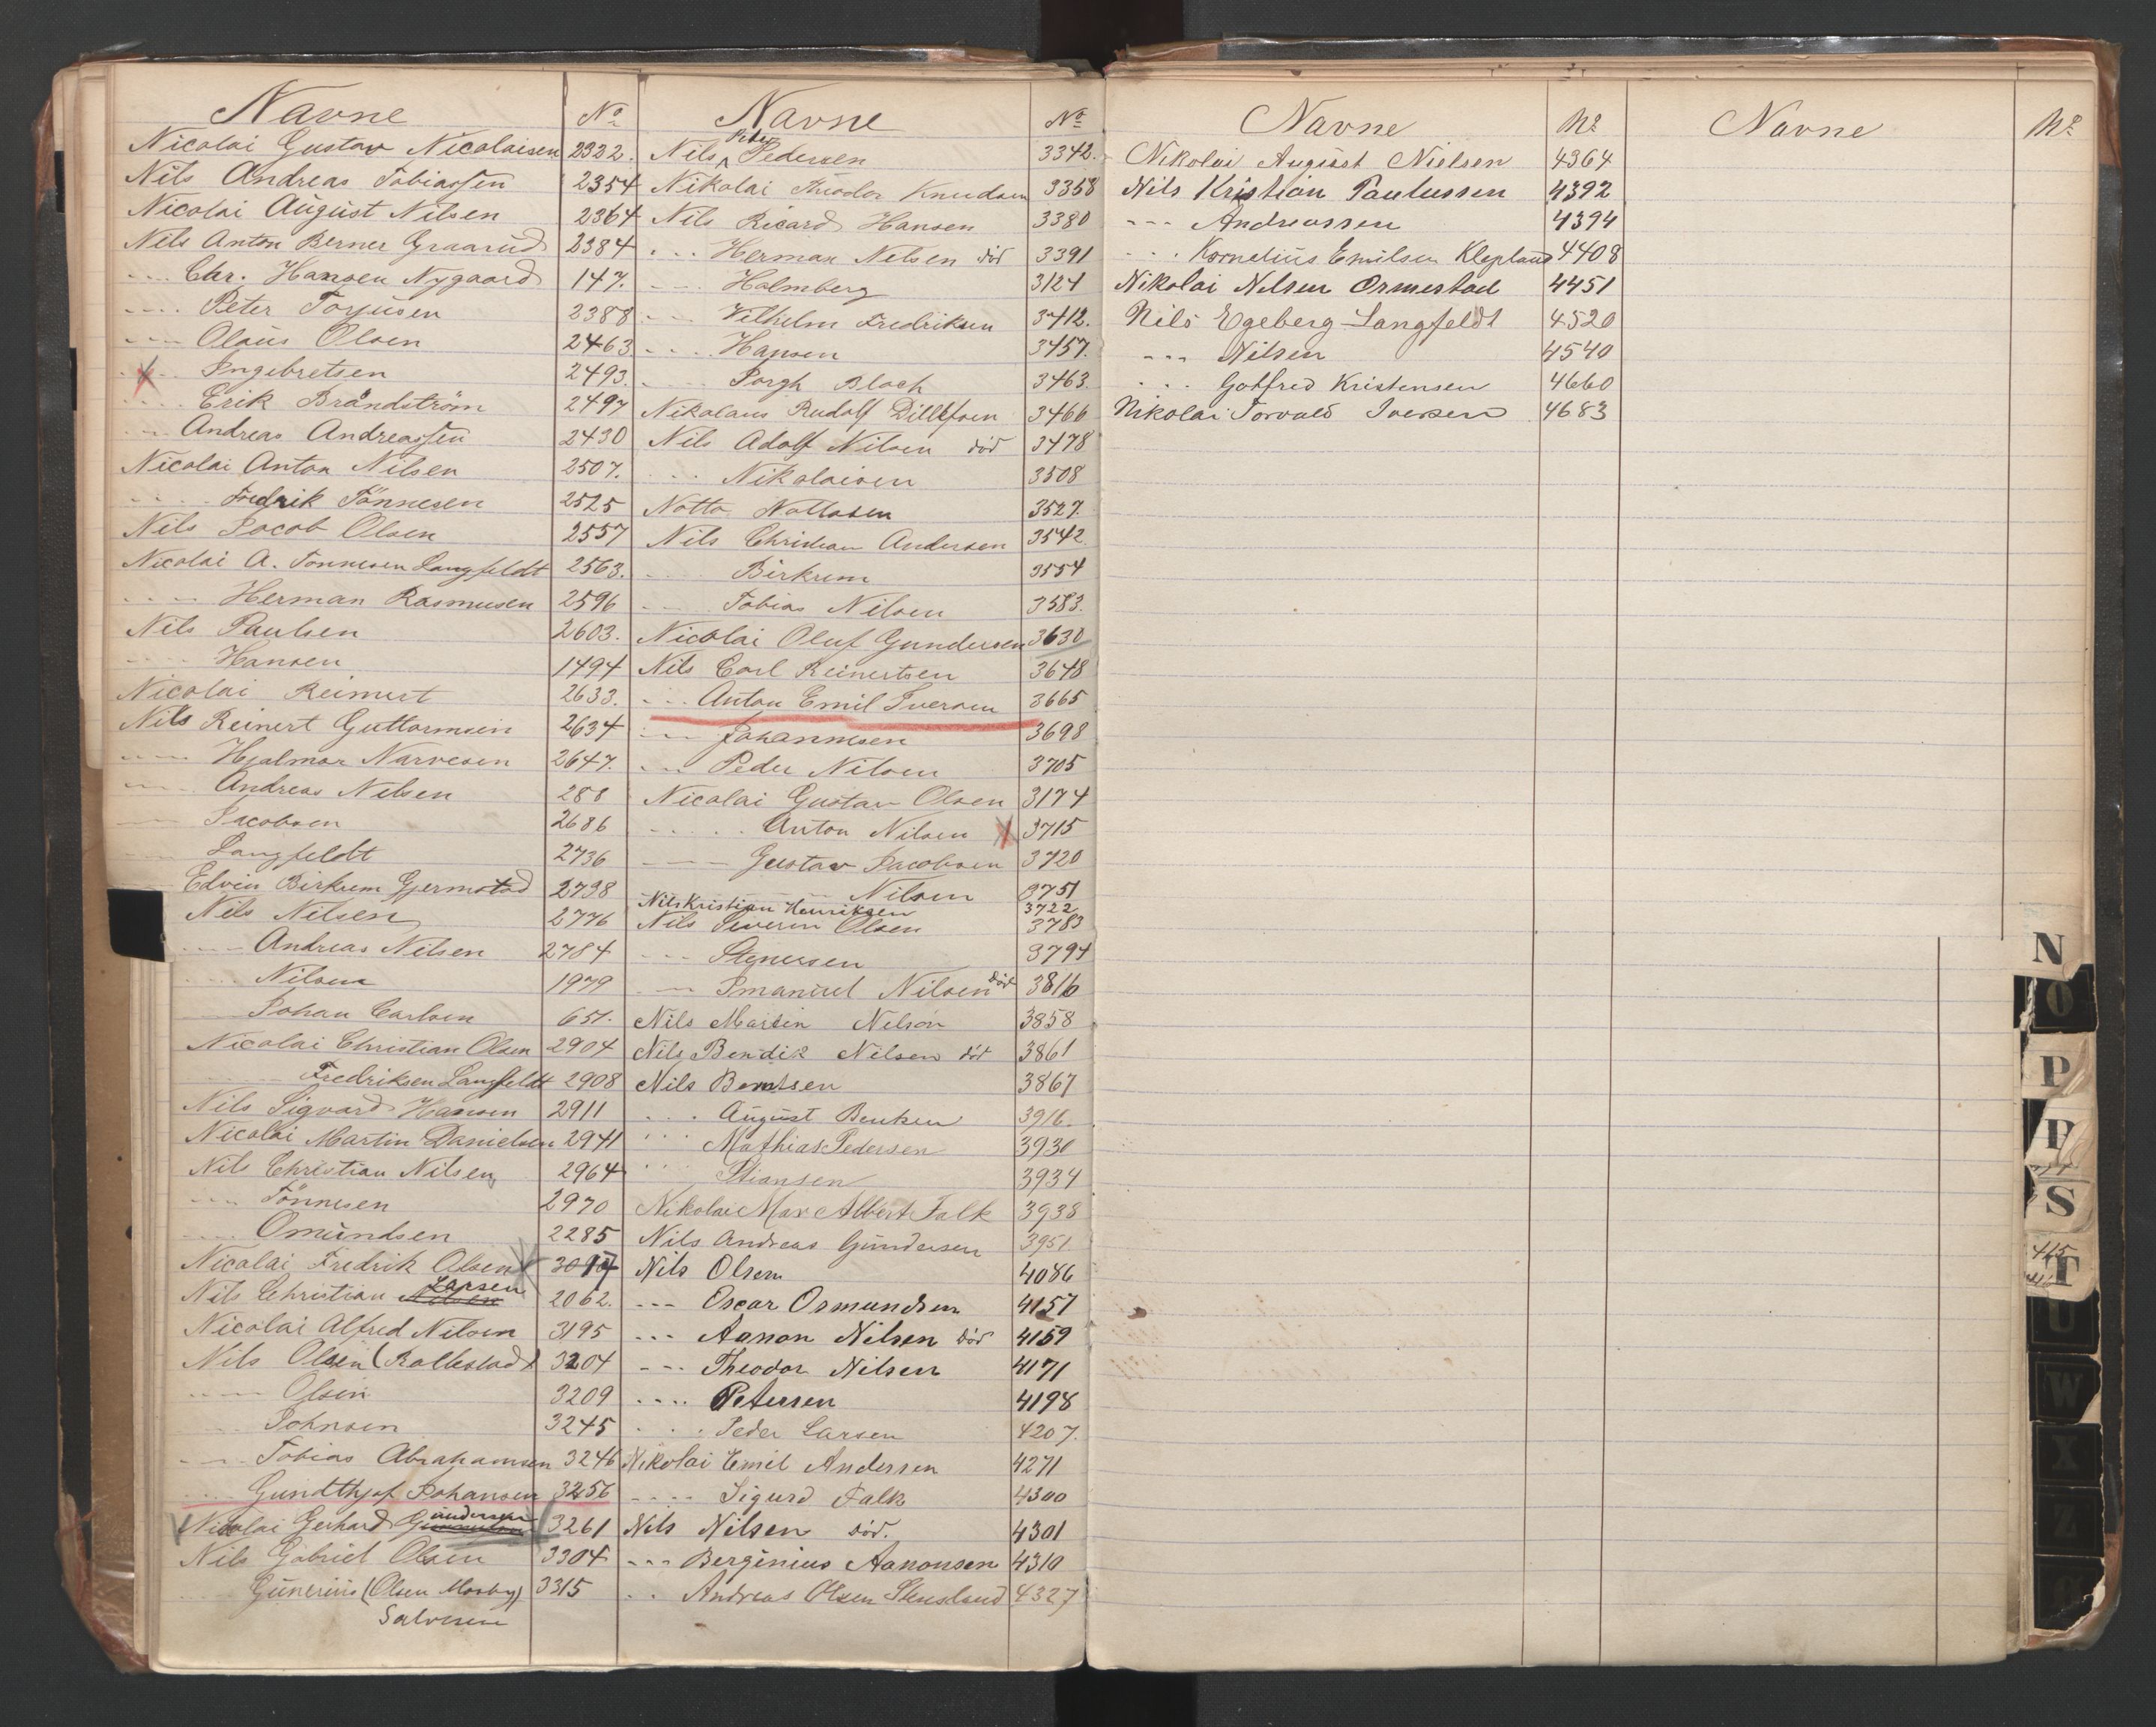 Navne No
Nicolai Gustav Nicolaisen 2322.
Nils Andreas Tobiassen 2354
Nicolai August Nilsen 2364
Nils Anton Berner Graarud 2384
---- Chr. Hansen Nygaard 147.
---- Peter Torjusen 2388
---- Olaus Olsen 2463
---- Ingebretsen 2493.
---- Erik Brandström 2497
---- Andreas Andreassen 2430
Nicolai Anton Nilsen 2507.
---- Fredrik Tönnesen 2525
Nils Jacob Olsen 2557
Nicolai A. Tonnesen Langfeldt 2563.
---- Herman Rasmusen 2596
Nils Paulsen 2603.
---- Hansen 1494
Nicolai Reinert 2633.
Nils Reinert Guttormsen 2634
---- Hjalmar Narvesen 2647.
---- Andreas Nilsen 288
---- Jacobsen 2686
---- Langfeldt 2736
Edvin Birkrem Gjermstad 2738
Nils Nilsen 2776
---- Andreas Nilsen 2784
---- Nilsen 1979
---- Johan Carlsen 651.
Nicolai Christian Olsen 2904
---- Fredriksen Langfeldt 2908
Nils Sigvard Hansen 2911
Nicolai Martin Danielsen 2941
Nils Christian Nilsen 2964
---- Tönnesen 2970
---- Omundsen 2285
Nicolai Fredrik Olsen
Nils Christian Nilsen Larsen 2062.
Nicolai Alfred Nilsen 3195
Nils Olsen (Rallestad) 3204
---- Olsen 3209
---- Johnsen 3245
---- Tobias Abrahamsen 3246
---- Gundthjof Johansen 3256
Nicolai Gerhard Gundersen 3261
Nils Gabriel Olsen 3304
Gunerius (Olsen Mosby) 3315
Salvesen
Navne No
Nils Peder Pedersen 3342.
Nikolai Theodor Knudsen 3358
Nils Ricard Hansen 3380
--- Herman Nilsen död 3391
--- Holmberg 3124
--- Vilhelm Fredriksen 3412.
--- Hansen 3457.
--- Borgh Bloch 3463.
Nikolaus Rudolf Dillefsen 3466
Nils Adolf Nilsen död 3478
--- Nikolaisen 3508
Notto Nottosen 3527.
Nils Christian Andersen 3542
--- Birkrem 3554
--- Tobias Nilsen 3583.
Nicolai Oluf Gundersen 3630
Nils Carl Reinertsen 3648
--- Anton Emil Iversen 3665
--- Johannesen 3698
--- Peder Nilsen 3705
Nicolai Gustav Olsen 3174
--- Anton Nilsen 3715
--- Gustav Jacobsen 3720
--- Nilsen 3751
Nils Kristian Henriksen 3722
Nils Severin Olsen 3783
--- Stenersen 3794
--- Imanuel Nilsen död 3816
Nils Martin Nilson 3858
Nils Bendik Nilsen död 3861
Nils Berntsen 3867
--- August Bentsen 3916.
--- Mathias Pedersen 3930
--- Stiansen 3934
Nikolai Max Albert Falk 3938
Nils Andreas Gundersen 3951.
Nils Olsen 4086
--- Oscar Osmundsen 4157
--- Aanon Nilsen död 4159
--- Theodor Nilsen 4171
---- Petersen 4198
--- Peder Larsen 4207.
Nikolai Emil Andersen 4271
---- Sigurd Falk 4300
Nils Nilsen död. 4301
--- Berginius Aanonsen 4310
--- Andreas Olsen Stensland 4327
Navne No
Nikolai August Nielsen 4364
Nils Kristian Paulussen 4392
--- Andreassen 4394
--- Kornelius Emilsen Klepland 4408
Nikolai Nilsen Ormestad 4451
Nils Egeberg Langfeldt 4520
--- Nilsen 4540
--- Gotfred Kristensen 4660
Nikolai Torvald Iversen 4683
Navne No
N
O
P
S
T
U
W
X
Z